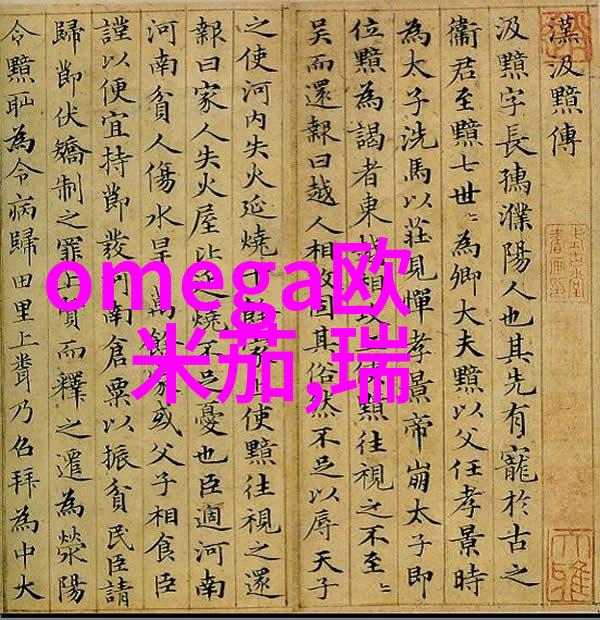 漢汲黯傳
汲黯字長孺濮陽人也其先有寵於古之
衛君至黯七世〻為卿大夫黯以父任孝景時
為太子洗馬以莊見憚孝景帝崩太子即
位黯為謁者東越相攻上使黯往視之不至〻
吳而還報曰越人相攻固其俗然不足以辱天子
之使河内失火延燒千餘家上使黯往視之還
報曰家人失火屋比延燒不足憂也臣適河南
河南貧人傷水旱萬餘家或父子相食臣
謹以便宜持節發河南倉粟以振貧民臣請
歸節伏矯制之罪上賢而釋之遷為滎陽
令黯恥為令病歸田里上聞乃召拜為中大
omega欧
米茄,瑞